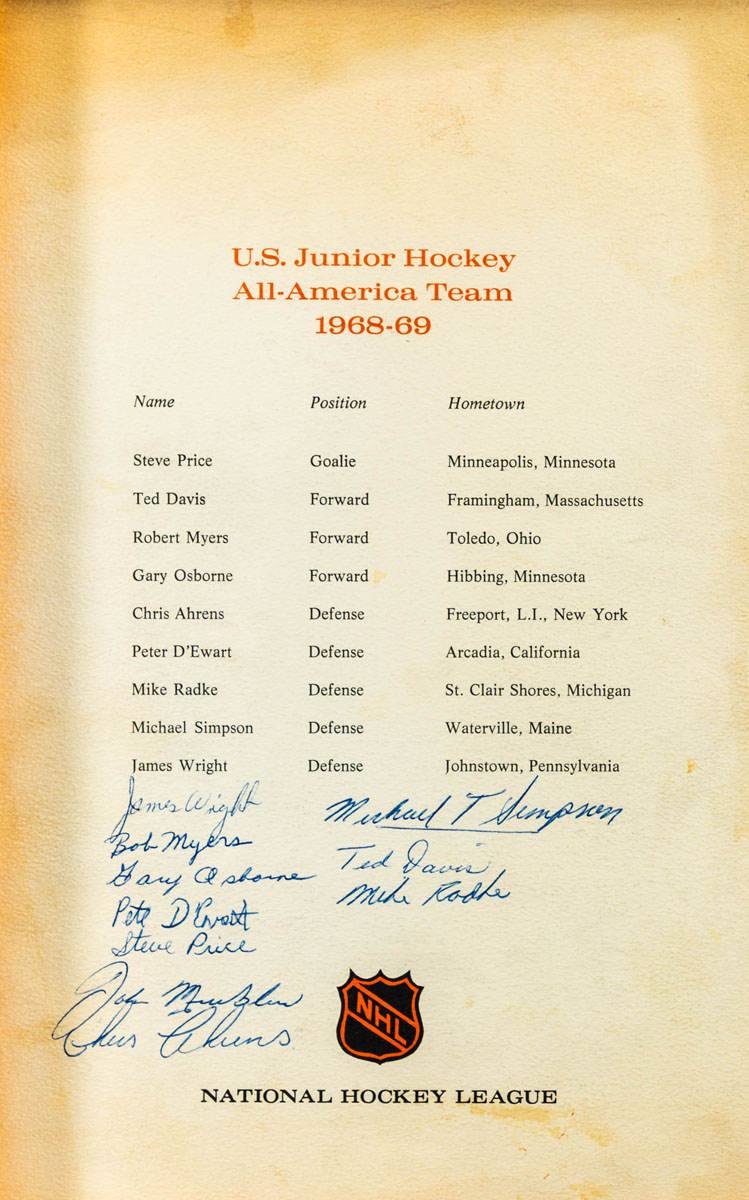 U.S. Junior Hockey
All-America Team
1968-69
Name Position Hometown
Steve Price Goalie Minneapolis, Minnesota
Ted Davis Forward Framingham, Massachusetts
Robert Myers Forward Toledo, Ohio
Gary Osborne Forward Hibbing, Minnesota
Chris Ahrens Defense Freeport, L.I., New York
Peter D'Ewart Defense Arcadia, California
Mike Radke Defense St. Clair Shores, Michigan
Michael Simpson Defense Waterville, Maine
James Wright Defense Johnstown, Pennsylvania
James Wright
Michael T Simpson
Bob Myers
Ted Davis
Gary Osborne
Mike Radke
Pete D'Ewart
Steve Price
John
Chris Ahrens
NHL
NATIONAL HOCKEY LEAGUE